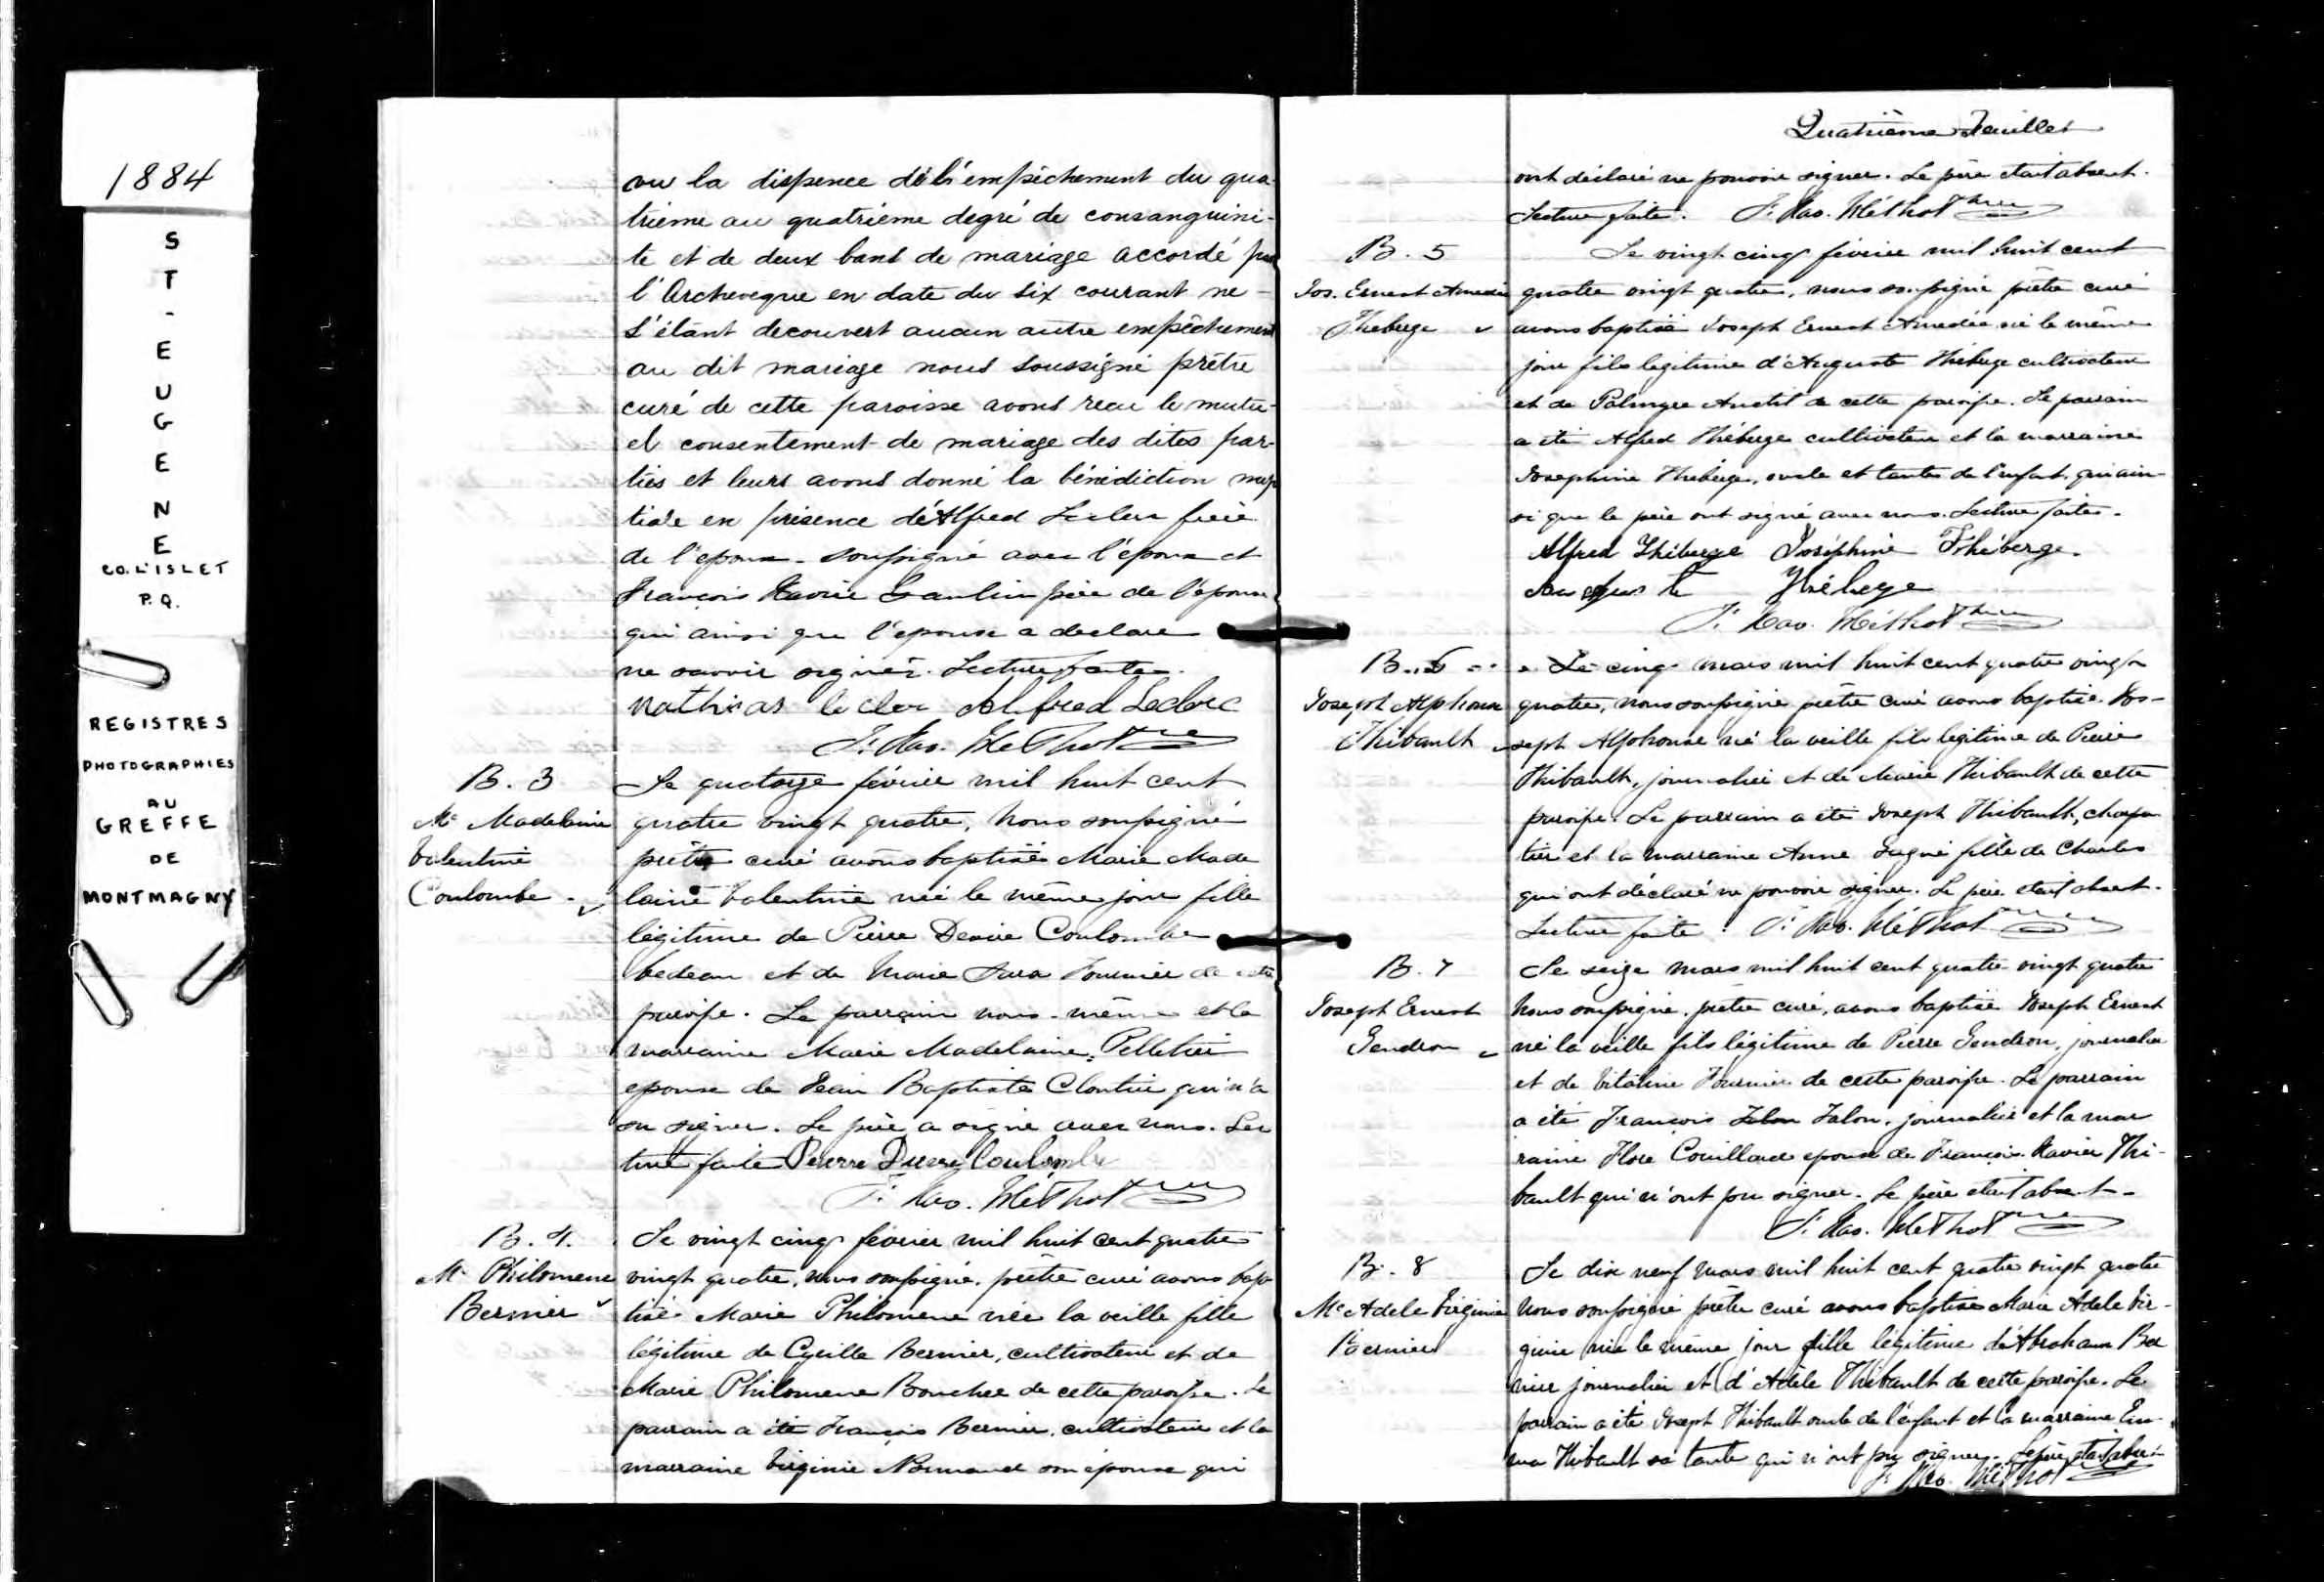 1884
ST-EUGENE
CO. L'ISLET
P.Q.
REGISTRES
PHOTOGRAPHIES
AU
GREFFE
DE
MONTMAGNY
vu la dispence de l'empêchement du qua-
trième au quatrième degré de consanguini-
té et de deux bans de mariage accordé par
l'Archeveque en date du six courant ne
s'étant decouvert aucun autre empêchement
au dit mariage nous soussigné prêtre
curé de cette paroisse avons recu le mutu-
el consentement de mariage des dites par-
ties et leurs avons donné la bénédiction nup
tiale en présence d'Alfred Leclerc frère
de l'epoux soussigné avec l'époux et
François Xavier Gaulin père de l'épouse
qui ainsi que l'epouse a declaré
ne savoir signer. Lecture faite.
Mathias le cler Alfred Leclerc
F. Xav. Méthot Ptre
B. 3
Me Madelaine
Valentine
Coulombe
Le quatorze février mil huit cent
quatre vingt quatre, nous soussigné
prêtre curé avons baptisée Marie Made
laine Valentine née le même jour fille
légitime de Pierre Desiré Coulombe
bedeau et de Marie Sara Fournier de cette
paroisse. Le parrain nous-même et la
marraine Marie Madelaine Pelletier
epouse de Jean Baptiste Cloutier qui n'a
su signer. Le père a signé avec nous. Lec
ture faite Pierre Coulombe
F. Xav. Méthot Ptre
B. 4.
Me Philomene
Bernier
Le vingt cinq fevrier mil huit cent quatre
vingt quatre, nous soussigné, prêtre curé avons bap
tisé Marie Philomene née la veille fille
légitime de Cyrille Bernier, cultivateur et de
Marie Philomene Boucher de cette paroisse. Le
parrain a été François Bernier, cultivateur et la
marraine Virginie Normand son épouse qui
Quatrième Feuillet
ont déclaré ne pouvoir signer. Le père était absent.
Lecture faite. F. Xav. Méthot Ptre
B. 5
Jos. Ernest Amedée
Theberge
Le vingt cinq février mil huit cent
quatre vingt quatre, nous soussigné prêtre curé
avons baptisé Joseph Ernest Amedée né le même
jour fils legitime d'Auguste Théberge cultivateur
et de Palmyre Anctil de cette paroisse. Le parrain
a été Alfred Théberge cultivateur et la marraine
Josephine Théberge, oncle et tante de l'enfant, qui ain-
si que le père ont signé avec nous. Lecture faite.
Alfred Théberge Joséphine Théberge.
Auguste Théberge
F. Xav. Méthot Ptre
B. 6
Joseph Alphonse
Thibault
Le cinq mars mil huit cent quatre vingt
quatre, nous soussigné prêtre curé avons baptisé Jos-
seph Alphonse né la veille fils légitime de Pierre
Thibault, journalier et de Marie Thibault de cette
paroisse. Le parrain a été Joseph Thibault, charpen
tier et la marraine Anne Gagné fille de Charles
qui ont déclaré ne pouvoir signer. Le père était absent.
Lecture faite. F. Xav. Méthot Ptre
B. 7
Joseph Ernest
Gendron
Le seize mars mil huit cent quatre vingt quatre
nous soussigné, prêtre curé, avons baptisé Joseph Ernest
né la veille fils légitime de Pierre Gendron, journalier
et de Vitaline Fournier de cette paroisse. Le parrain
a été François Jalon, journalier et la mar
raine Flore Couillard epouse de François Xavier Thi-
bault qui n'ont pu signer. Le père était absent.
F. Xav. Méthot Ptre
B. 8
Me Adele Virginie
Bernier
Le dix neuf mars mil huit cent quatre vingt quatre
nous soussigné prêtre curé avons baptisée Marie Adele Vir-
ginie née le même jour fille légitime d'Abraham Ber
nier journalier et d'Adèle Thibault de cette paroisse. Le
parrain a été Joseph Thibault oncle de l'enfant et la marraine Em-
ma Thibault sa tante qui n'ont pu signer. Le père était absent
F. Xav. Méthot Ptre